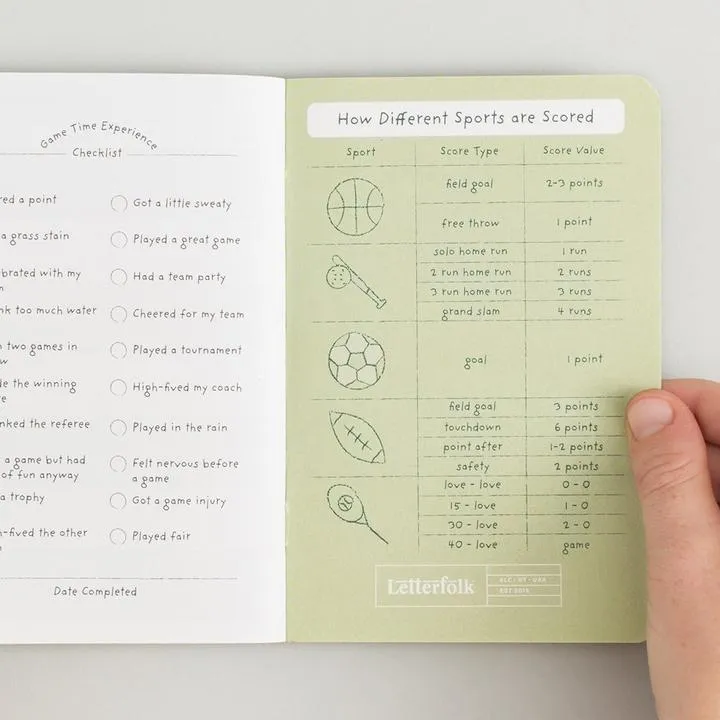 Game Time Experience
Checklist
red a point
Got a little sweaty
a grass stain
Played a great game
brated with my
Had a team party
nk too much water
Cheered for my team
two games in
w
Played a tournament
de the winning
e
High-fived my coach
nked the referee
Played in the rain
a game but had
of fun anyway
Felt nervous before
a game
a trophy
Got a game injury
n-fived the other
Played fair
Date Completed
How Different Sports are Scored
Sport Score Type Score Value
field goal 2-3 points
free throw 1 point
solo home run 1 run
2 run home run 2 runs
3 run home run 3 runs
grand slam 4 runs
goal 1 point
field goal 3 points
touchdown 6 points
point after 1-2 points
safety 2 points
love - love 0 - 0
15 - love 1 - 0
30 - love 2 - 0
40 - love game
Letterfolk
SLC • UT • USA
EST 2015